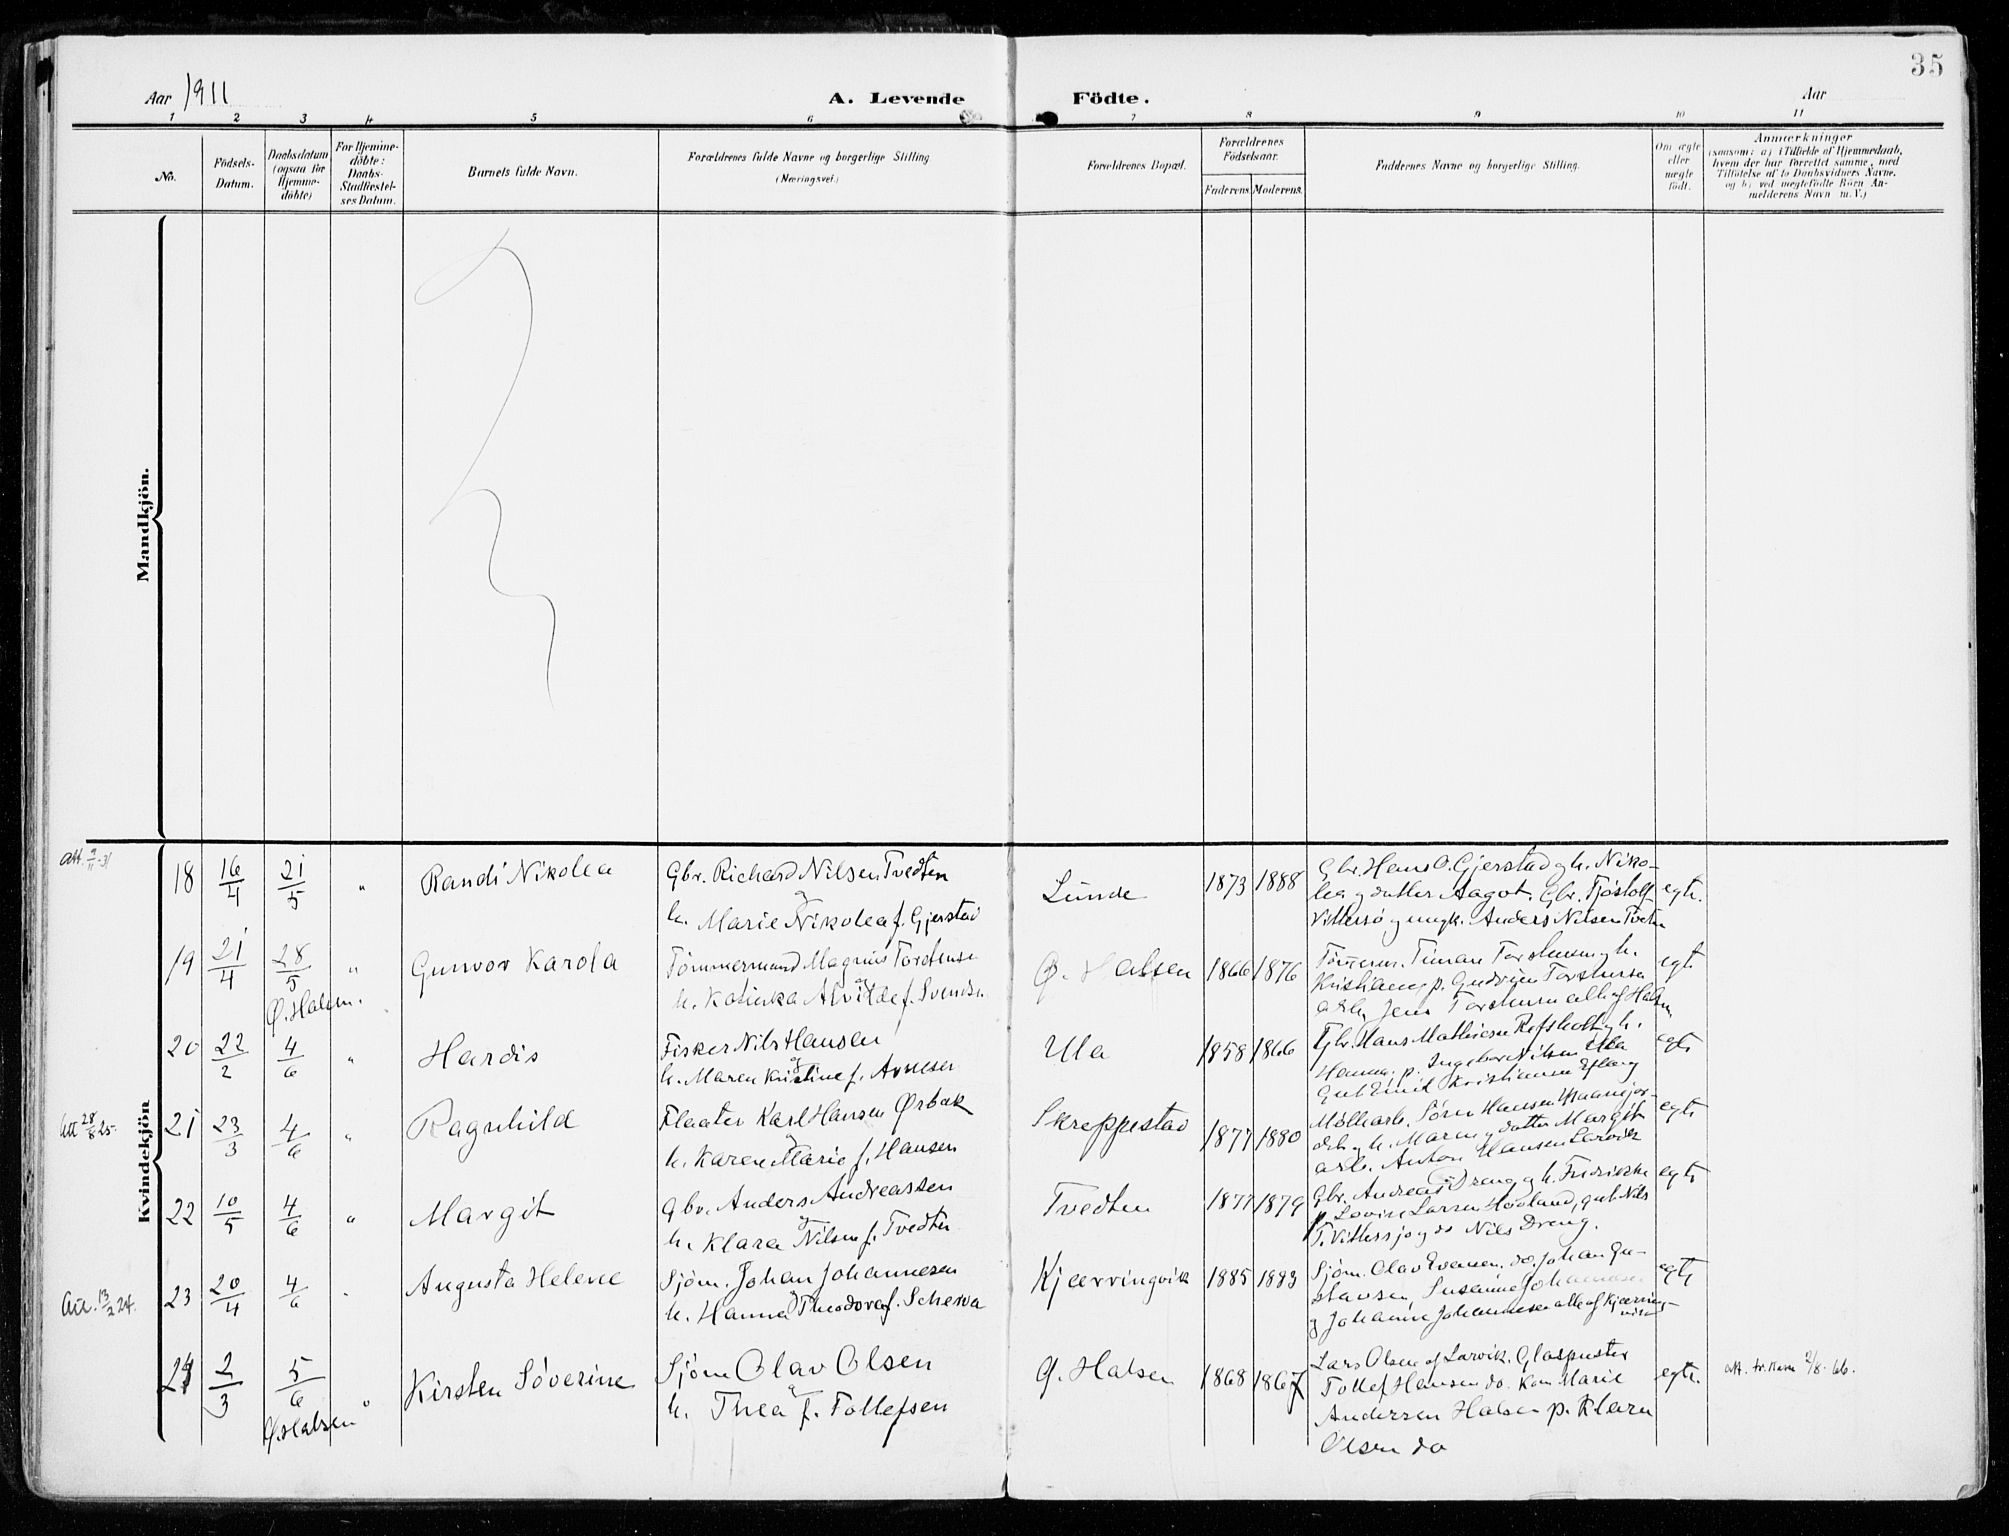 35
Aar 1911
A. Levende Födte.
Aar
1 2 3 4 5 6 7 8 9 10 11
No.
Födsels-Datum.
Daabsdatum (ogsaa for Hjemme-döbte)
For Hjemme-döbte: Daabs-Stadfæstel-ses Datum.
Barnets fulde Navn.
Forældrenes fulde Navne og borgerlige Stilling (Næringsvei.)
Forældrenes Bopæl.
Forældrenes Födselsaar.
Faderens Moderens.
Faddernes Navne og borgerlige Stilling.
Om ægte eller uægte födt.
Anmærkninger
(saasom: a) i Tilfælde af Hjemmedaab,
hvem der har forrettet samme, med
Tilföielse af to Daabsvidners Navne,
og b) ved uægtefödte Börn An-
melderens Navn m. V.)
Mandkjön.
Kvindekjön
18 16/4 21/5 " Randi Nikolea
Gbr. Richard Nilsen Tvedten
og
h. Marie Nikolea f. Gjerstad
Lunde 1873 1888
Gbr. Hans O. Gjerstad og h. Niko-
lea og datter Aagot. Gbr. Tjöstolf
Vittersö og ungk. Anders Nilsen Tvedten
egte.
19 21/4 28/5 " Gunvor Karola
Ø. Halsen.
Tömmermand Magnus Torstensen
og
h. Katinka Alvilde f. Svendsen
Ø. Halsen 1866 1876
Kristiane p. Gudrun Torstensen
Jens Torstensen alle af Halsen
egte
20 22/2 4/6 " Hardis
Fisker Nils Hansen
og
h. Maren Kristine f.
Ula 1858 1866
Gbr. Hans Mathisen Refsholt og h.
Hanna. p. Ingeborg Nilsen Ula
Emil Kristiansen
egte
Att 28/8 25.
21 23/3 4/6 " Ragnhild
Flaater Karl Hansen Ørbæk
og
h. Karen Marie f. Hansen
Skreppestad 1877 1880
Sören Hansen
og h. Maren og datter Margit
arb. Anton Hansen Larvik
egte
22 10/5 4/6 " Margit
Gbr. Anders Andreassen
og
h. Klara Nilsen f. Tvedten
Tvedten 1877 1879
Gbr. Andreas Dreng og h. Fredrikke
p. Lovise Larsen Hovland, gut Nils
T. Vittersjö og do Nils Dreng.
egte
Att. 13/2 24.
23 20/4 4/6 " Augusta Helene
Sjöm. Johan Johannesen
og
h. Hanna Theodora f. Scherva
Kjærringvik 1885 1883
Sjöm. Olav Evensen, do. Johan Gu-
stavsen, Susanne Johannesen
og Johanne Johannesen alle af Kjærring-
vik
egte
24 2/3 5/6 " Kirsten Söverine
Ø. Halsen
Sjöm Olav Olsen
og
h. Thea f. Tollefsen
Ø. Halsen 1868 1867
Lars Olsen af Larvik. Glaspuster
Tollef Hansen do. Kone Marie
Andersen Halsen p. Klara
Olsen do
egte.